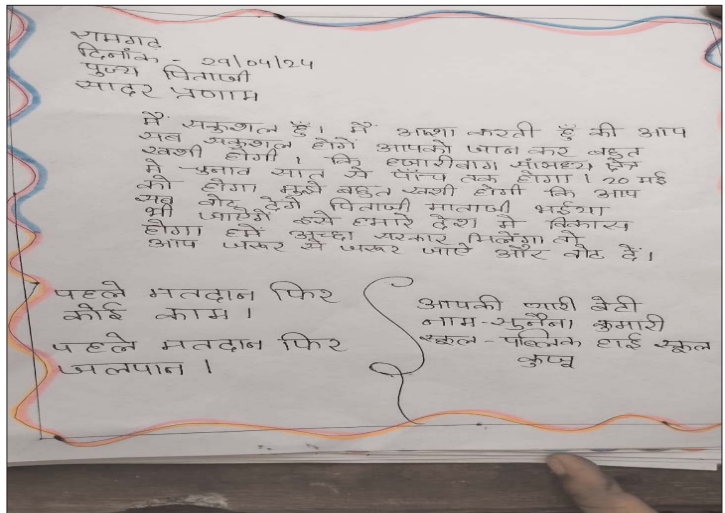 रामगढ़
दिनाँक - 29/04/24
पुज्य पिताजी
सादर प्रणाम
मैं सकुशल हुँ। मैं आशा करती हुँ की आप
सब सकुशल होगें आपको जान कर बहुत
खुशी होगी। कि हजारीबाग सांसध्य क्षेत्र
मे चुनाव सात से पाँच तक होगा। 20 मई
को होगा मुझे बहुत खुशी होगी कि आप
सब वोट देगें पिताजी माताजी भईया
भी जाऐगें हमारे देश मे विकास
होगा हमें अच्छा सरकार मिलेगा तो
आप जरूर से जरूर जाऐ और वोट दें।
पहले मतदान फिर
कोई काम।
पहले मतदान फिर
जलपान।
आपकी प्यारी बेटी
नाम - सुनैना कुमारी
स्कूल - पब्लिक हाई स्कूल
कुजू